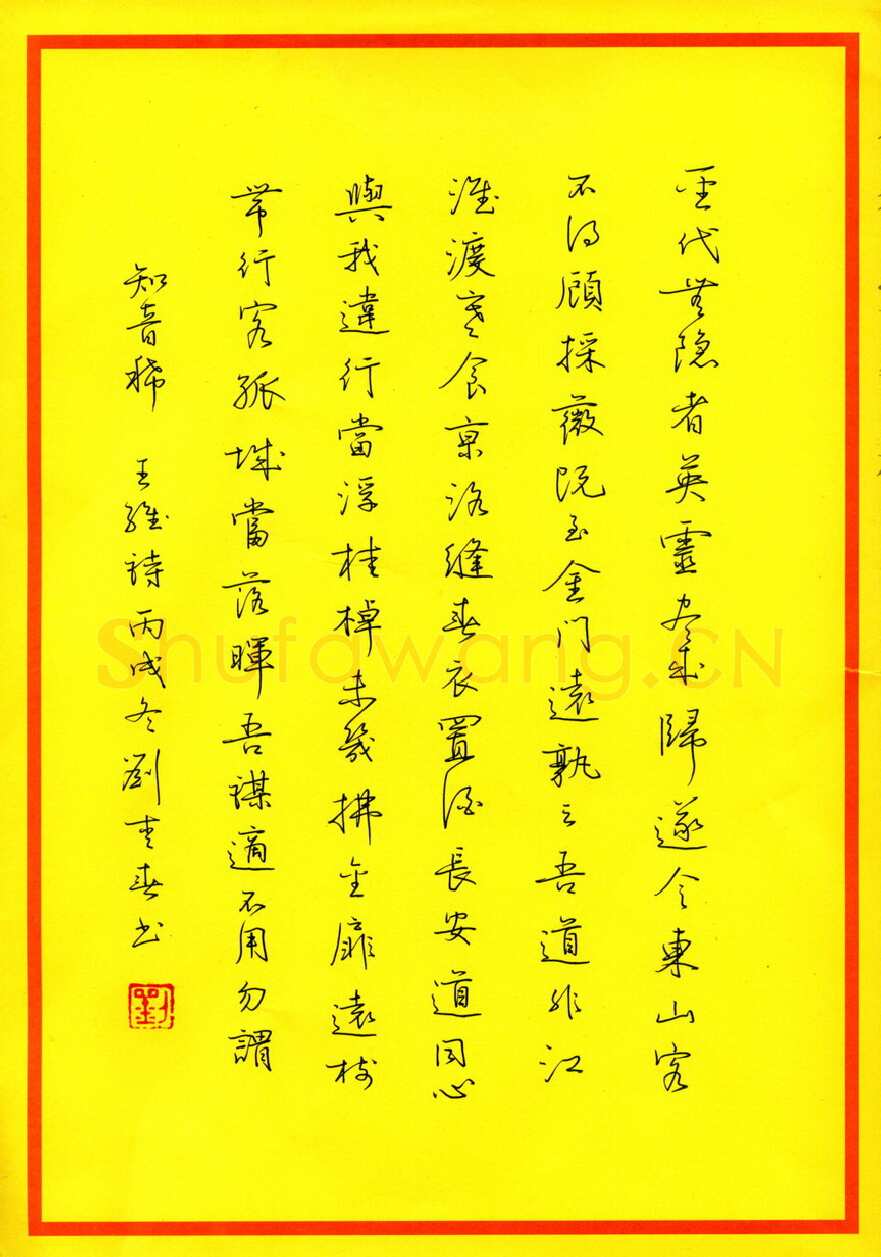 聖代無隐者英靈尽来歸遂令東山客
不得顧採薇既至金門遠孰云吾道非江
淮渡寒食京洛縫春衣置酒長安道同心
與我違行當浮桂棹未幾拂扉遠樹
帶行客孤城當落暉吾謀適不用勿謂
知音稀 王維詩丙戌冬劉春书
劉
Shufawang.CN